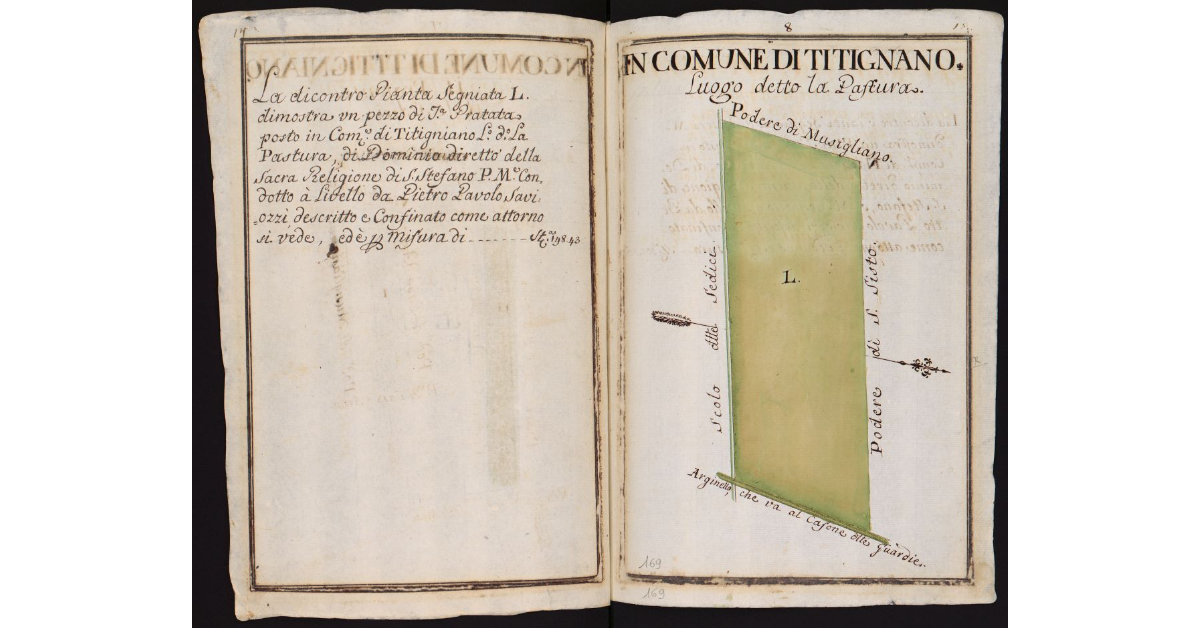 14
La dicontro Pianta Segniata L.
dimostra vn pezzo di T.ª Pratata
posto in Com.e di Titigniano L.º d.º La
Pastura, di Dominio diretto della
Sacra Religione di S. Stefano P. M.e Con,
dotto à Livello da Pietro Pavolo Savi,
ozzi descritto e Confinato come attorno
si vede, ed è p misura di ........ St.ª 198.43
8
15
IN COMUNE DI TITIGNANO.
Luogo detto la Pastura.
Podere di Musigliano.
L.
Scolo dlle Sedici.
Podere di S. Sisto.
Arginello, che va al Casone dlle Guàrdie.
169
169